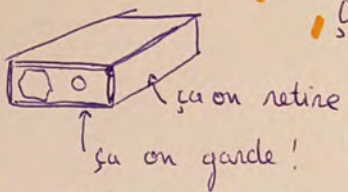 ça on retire
ça on garde !